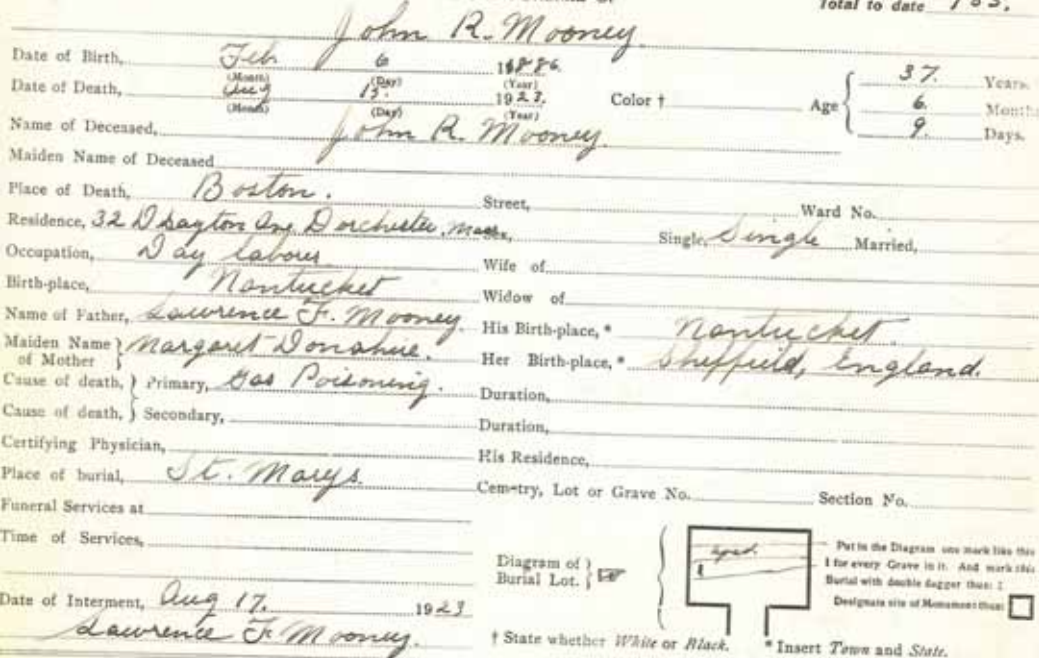 Total to date 783.
John R. Mooney
Date of Birth, Feb 6 1886.
(Month) (Day) (Year)
Date of Death, Aug 15. 1923. Color † Age { 37. Years
(Month) (Day) (Year) 6. Months
9. Days.
Name of Deceased, John R. Mooney.
Maiden Name of Deceased
Place of Death, Boston. Street, Ward No.
Residence, 32 Drayton Ave Dorchester, Mass. Single, Single Married,
Occupation, Day labour Wife of
Birth-place, Nantucket Widow of
Name of Father, Lawrence F. Mooney. His Birth-place, * Nantucket.
Maiden Name of Mother } Margaret Donahue. Her Birth-place, * Sheffield, England.
Cause of death, } Primary, Gas Poisoning. Duration,
Cause of death, } Secondary, Duration,
Certifying Physician, His Residence,
Place of burial, St. Marys. Cemetry, Lot or Grave No. Section No.
Funeral Services at
Time of Services,
Diagram of Burial Lot. }
Put in the Diagram one mark like this
I for every Grave in it. And mark this
Burial with double dagger thus: ‡
Designate site of Monument thus:
Date of Interment, Aug 17. 1923
Lawrence F. Mooney.
† State whether White or Black. * Insert Town and State.